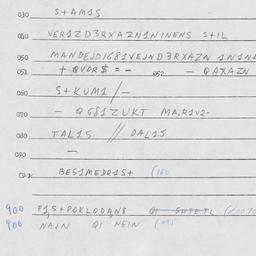 030 S+AM1S
040 VER1ZD3RXAZN1NINENS S+IL
050 MANDEJDIG81VEJND3RXAZN 1N1N
051 +QVOR$=- 052 - QAXAZN
060 S+KUM1/-
070 - QG81ZUKT MA,R1V2-
080 TAL1S // DAL1S
090 -
BES1MEDR1S+ (160
900 P1S+POKLODANS QI
900 NAIN QI NEIN (095